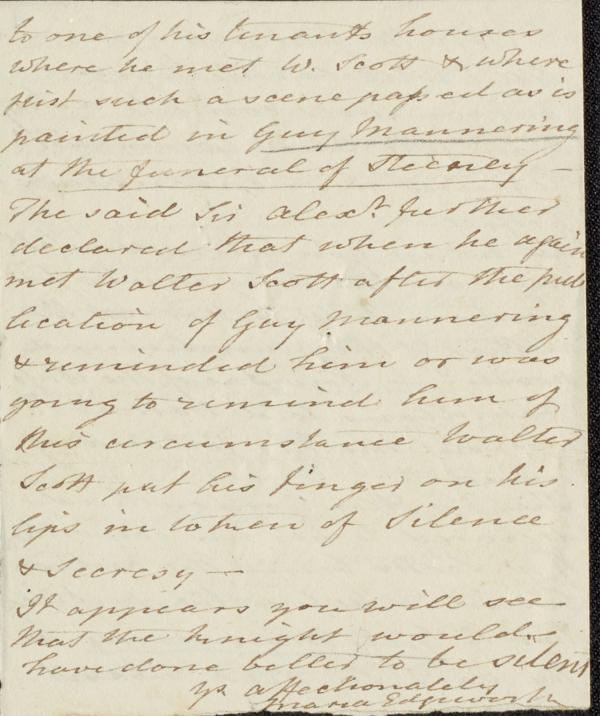 to one of his tenants houses
where he met W. Scott & where
just such a scene passed as is
painted in Guy Mannering
at the funeral of Steeney —
The said Sir Alexr. further
declared that when he again
met Walter Scott after the pub
lication of Guy Mannering
& reminded him or was
going to remind him of
this circumstance Walter
Scott put his finger on his
lips in token of Silence
& Secresy —
It appears you will see
that the knight would
have done better to be silent
yr affectionately
Maria Edgeworth